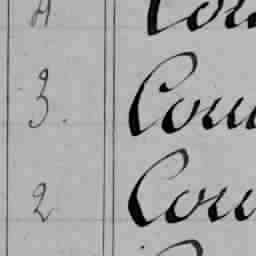 4 Cou
3. Cou
2 Cou